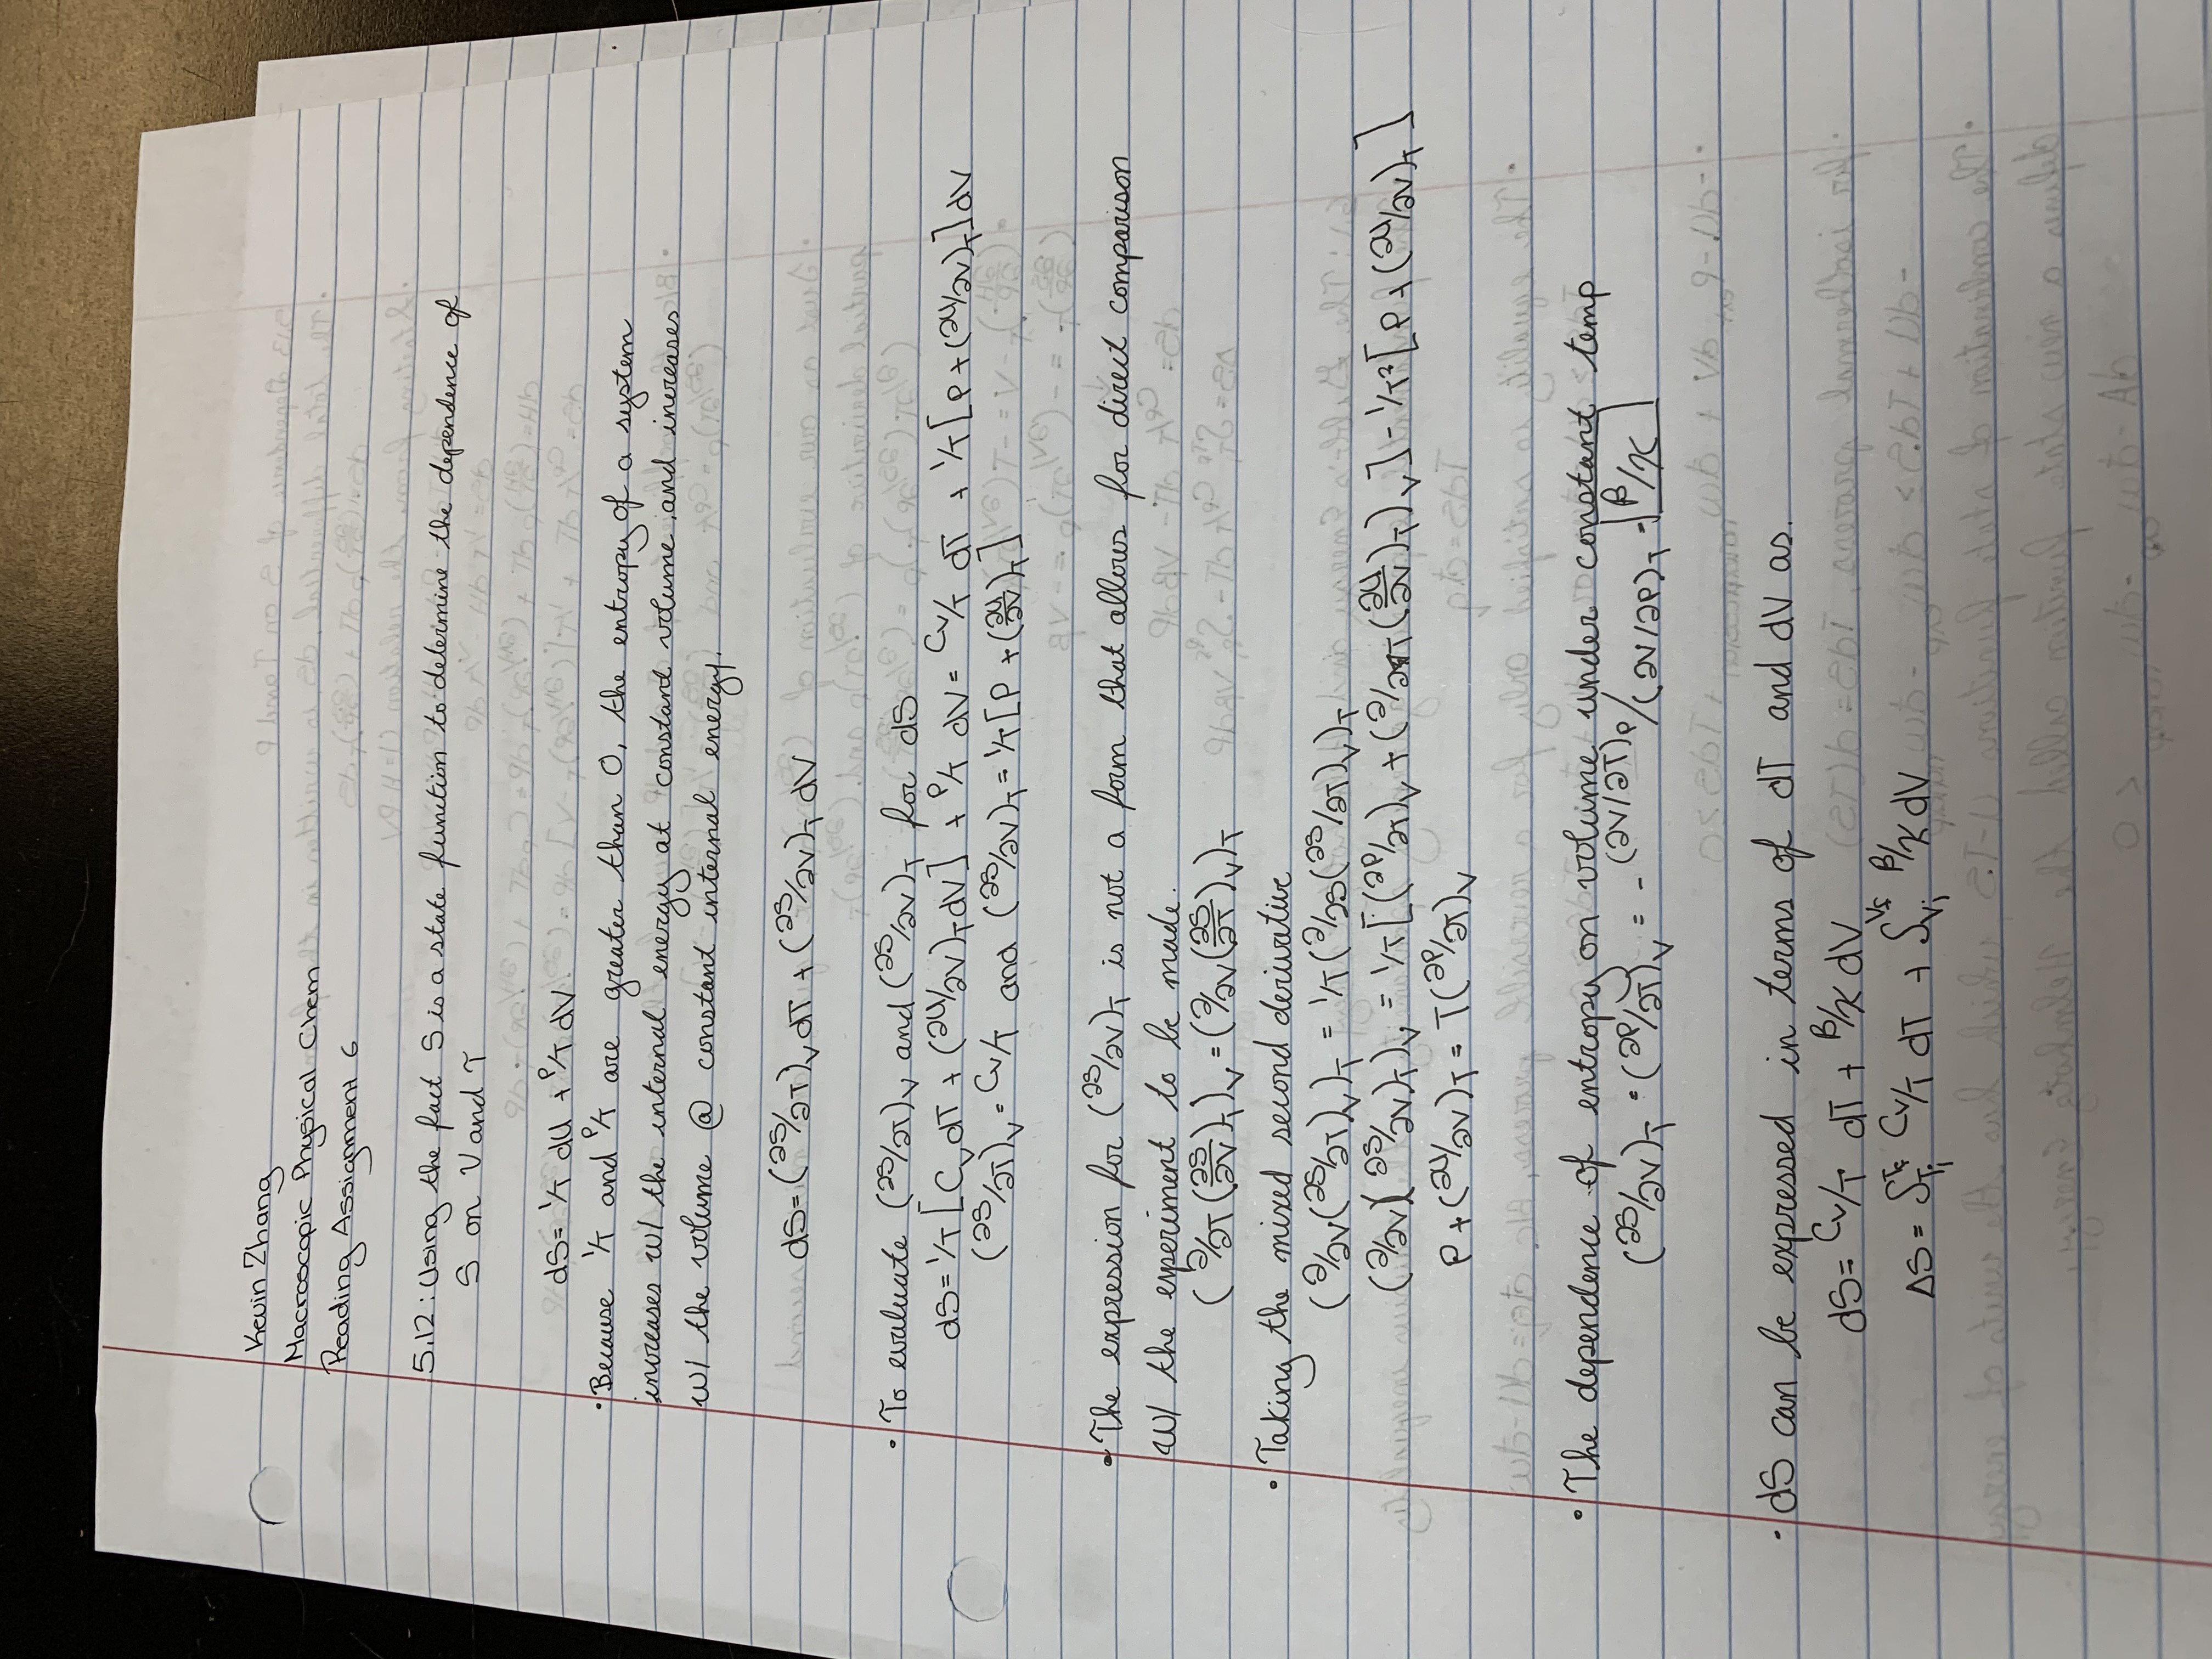 Kevin Zhang
Macroscopic Physical Chem
Reading Assignment 6
5.12: Using the fact S is a state function to determine the dependence of
S on V and T
dS= 1/T dU + P/T dV
• Because 1/T and P/T are greater than 0, the entropy of a system
increases w/ the internal energy at constant volume, and increases
w/ the volume @ constant internal energy.
dS=(∂S/∂T)_V dT + (∂S/∂V)_T dV
• To evaluate (∂S/∂T)_V and (∂S/∂V)_T for dS
dS= 1/T [C_V dT + (∂U/∂V)_T dV] + P/T dV = C_V/T dT + 1/T [P+(∂U/∂V)_T] dV
(∂S/∂T)_V = C_V/T and (∂S/∂V)_T = 1/T [P + (∂U/∂V)_T]
• The expression for (∂S/∂V)_T is not a form that allows for direct comparison
w/ the experiment to be made.
(∂/∂T (∂S/∂V)_T)_V = (∂/∂V (∂S/∂T)_V)_T
• Taking the mixed second derivative
(∂/∂V (∂S/∂T)_V)_T = 1/T (∂/∂S (∂S/∂T)_V)_T
(∂/∂V)(∂S/∂V)_T)_V = 1/T [(∂P/∂T)_V + (∂/∂T (∂U/∂V)_T)_V] - 1/T² [P + (∂U/∂V)_T]
P + (∂U/∂V)_T = T(∂P/∂T)_V
• The dependence of entropy on volume under constant temp
(∂S/∂V)_T = (∂P/∂T)_V = - (∂V/∂T)_P/(∂V/∂P)_T = β/κ
• dS can be expressed in terms of dT and dV as.
dS= C_V/T dT + β/κ dV
ΔS = ∫_{T_i}^{T_f} C_V/T dT + ∫_{V_i}^{V_f} β/κ dV